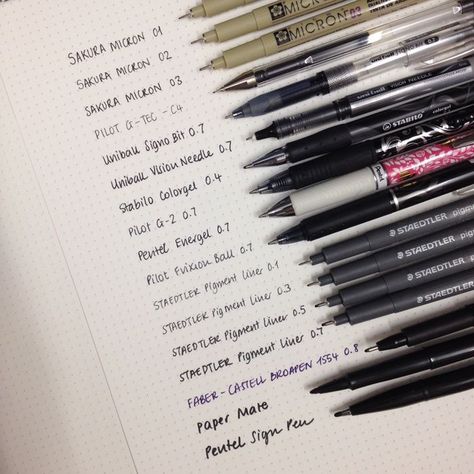 SAKURA MICRON 01
SAKURA MICRON 02
SAKURA MICRON 03
PILOT G-TEC-C4
Uniball Signo Bit 0.7
Uniball Vision Needle 0.7
Stabilo Colorgel 0.4
Pilot G-2 0.7
Pentel Energel 0.7
Pilot Frixion Ball 0.7
STAEDTLER Pigment Liner 0.1
STAEDTLER Pigment Liner 0.3
STAEDTLER Pigment Liner 0.5
STAEDTLER Pigment Liner 0.7
FABER-CASTELL BROAPEN 1554 0.8
PAPER MATE
Pentel Sign Pen
MICRON
MICRON 03
VISION NEEDLE
STABILO colorgel
STAEDTLER pigm
STAEDTLER pigm
STAEDTLER
STAEDTLER